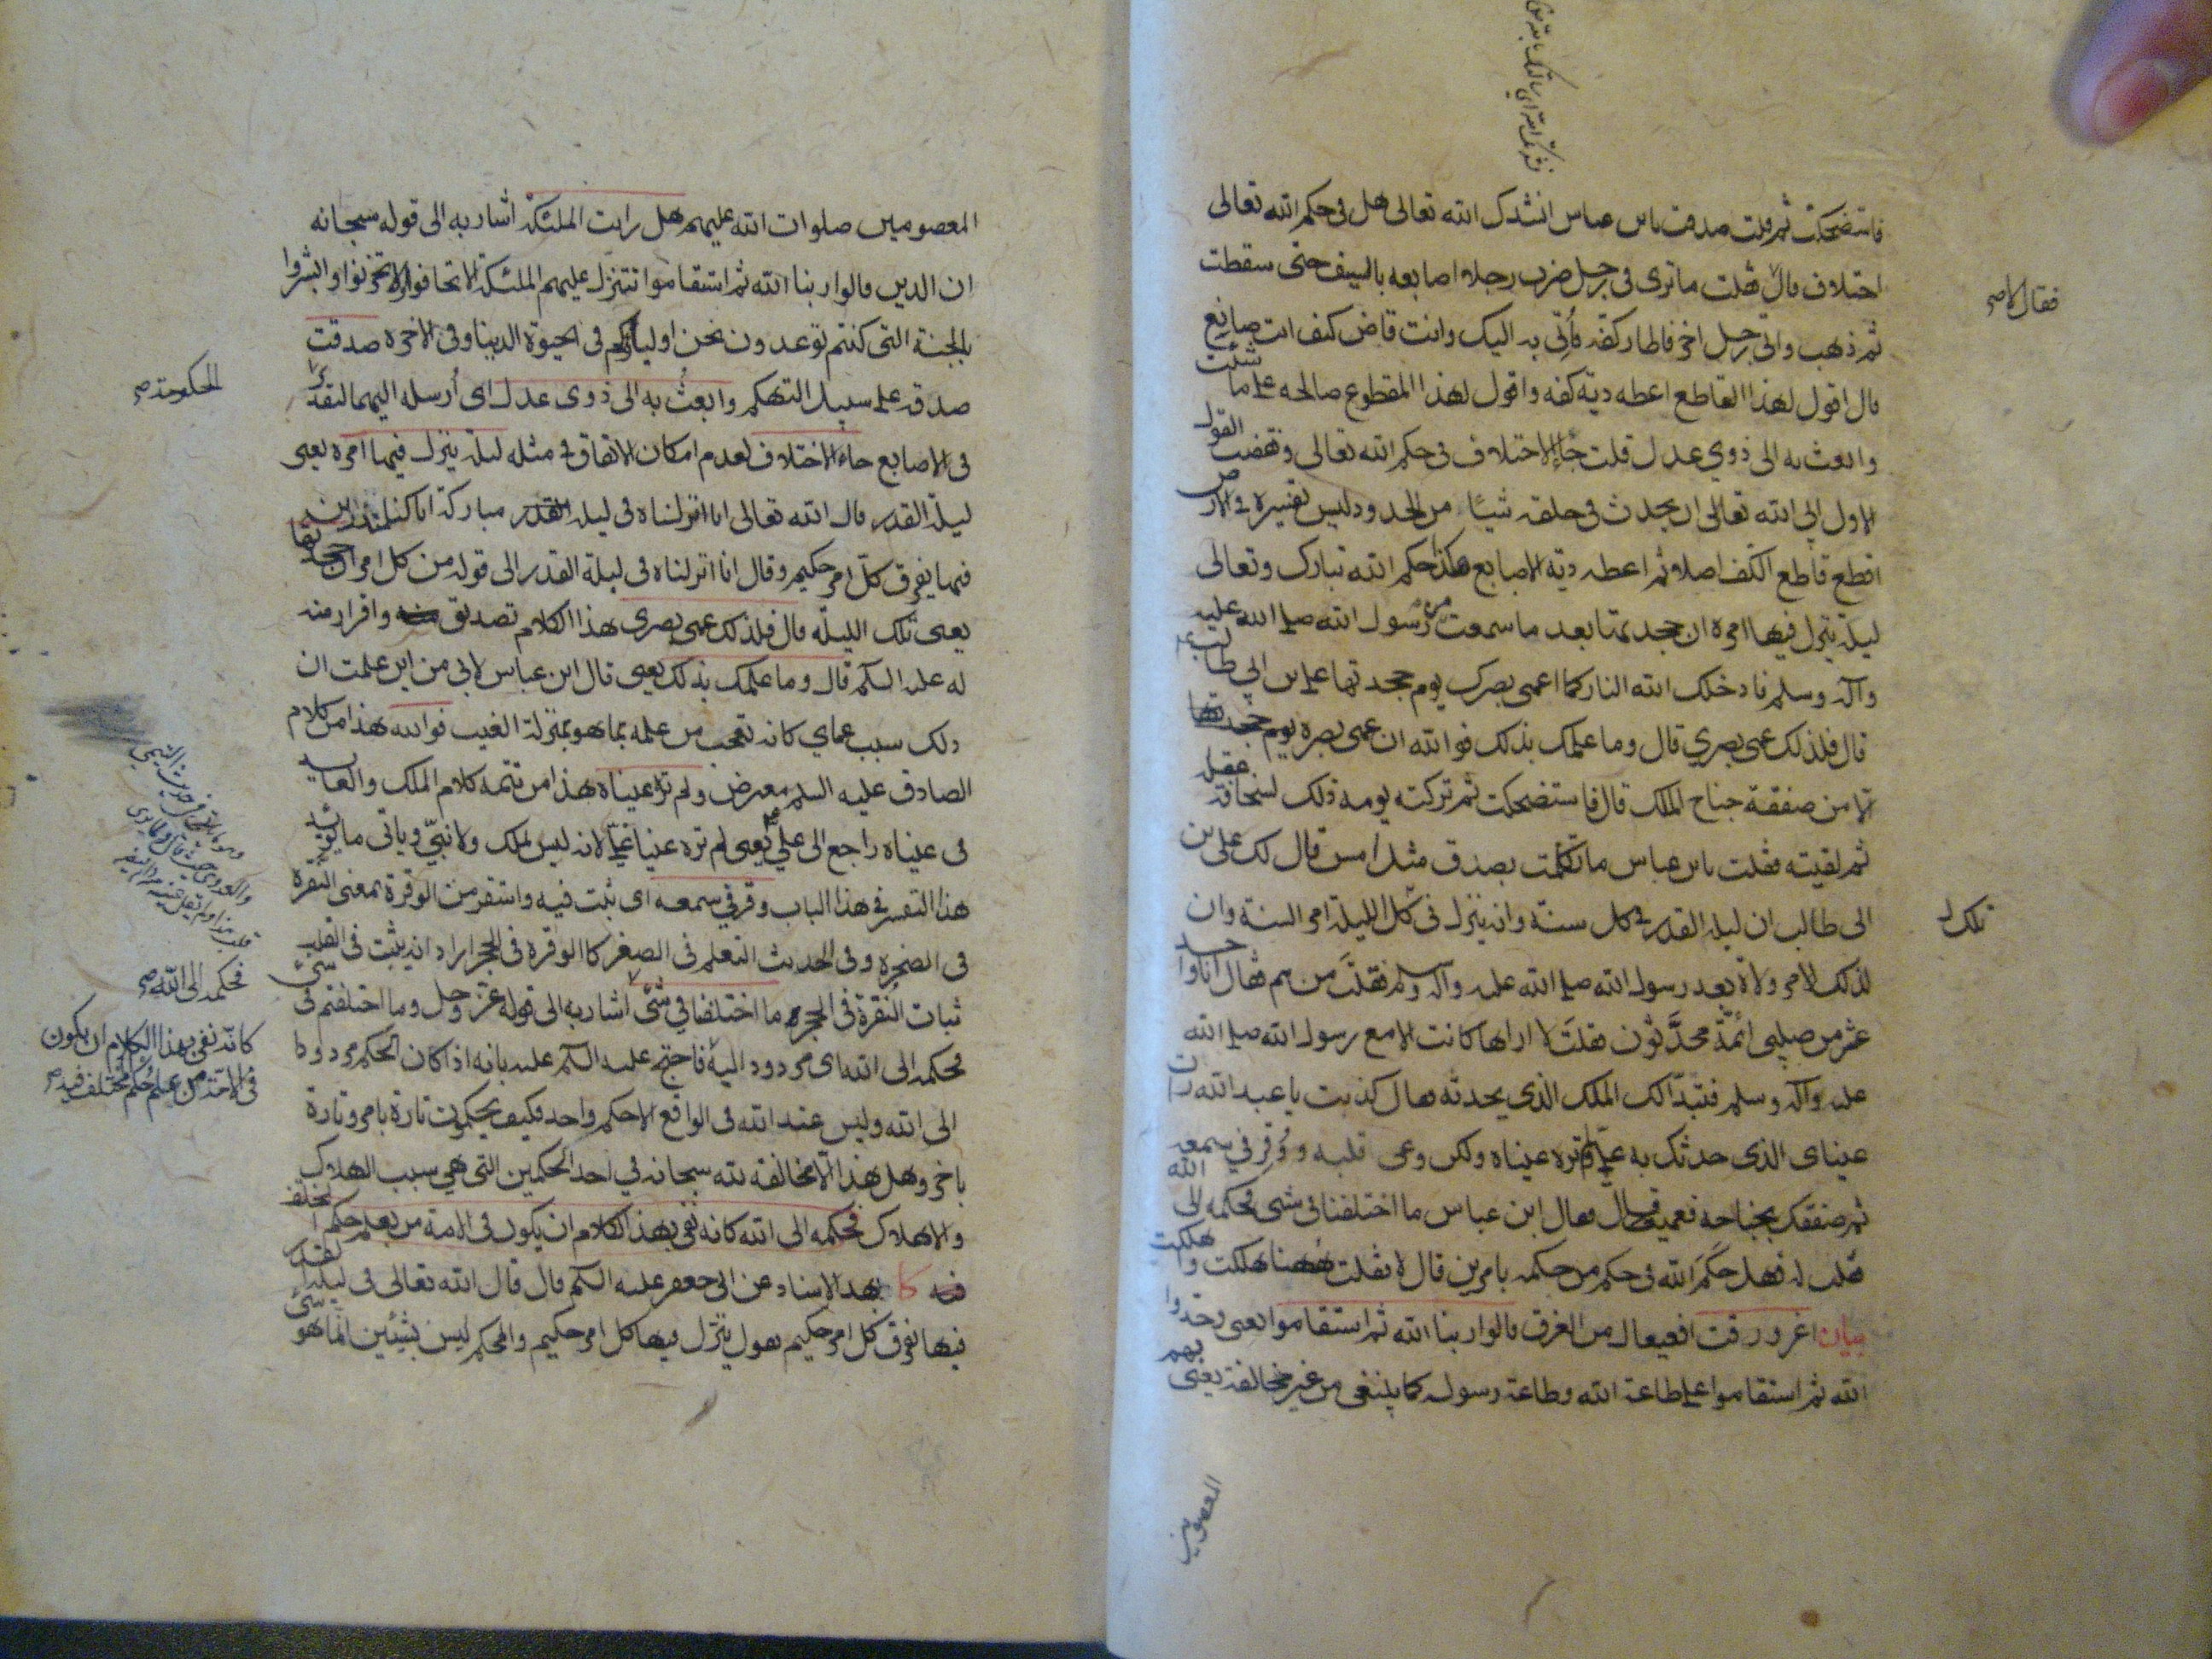 فاستضحكت ثم قلت صدقت يابن عباس انشدك الله تعالى هل في حكم الله تعالى
اختلاف قال فقلت ما ترى في رجل ضرب رجلا اصابعه بالسيف حتى سقطت
فقال لا صح
ثم ذهب واتى رجل اخر فاطار كفه فأتي به اليك وانت قاض كيف انت صانع
قال اقول لهذا القاطع اعطه دية كفه واقول لهذا المقطوع صالحه على ما شئت
وابعث به الى ذوي عدل قلت جاء الاختلاف في حكم الله تعالى ونقضت القول
الاول ابى الله تعالى ان يحدث في خلقه شيئا من الحدود وليس تفسيره في الارض
اقطع قاطع الكف اصلا ثم اعطه دية الاصابع هكذا حكم الله تبارك وتعالى
ليلة ينزل فيها امره ان جحدتها بعد ما سمعت من رسول الله صلى الله عليه
وآله وسلم فادخلك الله النار كما اعمى بصرك يوم جحدتها على بن ابي طالب
قال فلذلك عمى بصري قال وما علمك بذلك فوالله ان عمى بصره يوم جحدتها
الا من صفقة جناح الملك قال فاستضحكت ثم تركته يومه ذلك لسخافة عقله
ثم لقيته فقلت يابن عباس ما تكلمت بصدق مثل امس قال لك على بن
ابى طالب ان ليلة القدر في كل سنة وانه ينزل في تلك الليلة امر السنة وان
تلك
لذلك الامر ولاة بعد رسول الله صلى الله عليه وآله وسلم فقلت من هم فقال انا واحد
عشر من صلبى ائمة محدثون فقلت لا اراها كانت الا مع رسول الله صلى الله
عليه وآله وسلم فتبدا لك الملك الذى يحدثه فقال كذبت يا عبد الله رات
عيناى الذى حدثك به على ولم تره عيناه ولكن وعى قلبه ووقر في سمعه
ثم صفقك بجناحه فعميت قال فقال ابن عباس ما اختلفنا في شيء فحكمه الى الله
فقلت له فهل حكم الله في حكم من حكمه بامرين قال لا فقلت ههنا هلكت واهلكت
بيان اغرورقت افعيعال من الغرق قالوا ربنا الله ثم استقاموا يعنى وحدوا
الله ثم استقاموا على طاعة الله وطاعة رسوله كما ينبغى من غير مخالفة يعنى بهم
المعصومين
المعصومين صلوات الله عليهم هل رايت الملئكة اشار به الى قوله سبحانه
ان الذين قالوا ربنا الله ثم استقاموا تتنزل عليهم الملئكة الا تخافوا ولا تحزنوا وابشروا
بالجنة التى كنتم توعدون نحن اولياؤكم في الحيوة الدنيا وفى الاخرة صدقت
صدقه على سبيل التهكم وابعث به الى ذوى عدل اى أرسله اليهما لتقدير
الحكومة صح
فى الاصابع جاء الاختلاف لعدم امكان الاتفاق في مثله ليلة ينزل فيها امره يعنى
ليلة القدر قال الله تعالى انا انزلناه فى ليلة مباركة انا كنا منذرين
فيها يفرق كل امر حكيم وقال انا انزلناه فى ليلة القدر الى قوله من كل امر ان جحدتها
يعنى تلك الليلة قال فلذلك عمى بصرى هذا الكلام تصديق واقرار منه
له عليه السلم قال وما علمك بذلك يعنى قال ابن عباس لابى من اين علمت ان
ذلك سبب عماي كانه تعجب من علمه بما هو بمنزلة الغيب فوالله هذا من كلام
الصادق عليه السلم معترض ولم تره عيناه هذا من تتمة كلام الملك والعايد
فى عيناه راجع الى على يعنى لم تره عينا على لانه ليس لملك ولا نبي وياتى ما يؤيد
هذا التفسير في هذا الباب وقر في سمعه اى ثبت فيه واستقر من الوقرة بمعنى النقرة
فى الصخرة وفى الحديث التعلم فى الصغر كالوقرة فى الحجر اراد انه يثبت فى القلب
ثبات النقرة فى الحجر ما اختلفنا في شئ اشار به الى قوله عز وجل وما اختلفتم فى شئ
فحكمه الى الله صح
فحكمه الى الله اى مردود اليه فاحتج عليه السلم عليه بانه اذا كان الحكم مردودا
الى الله وليس عند الله فى الواقع الا حكم واحد فكيف يحكمون تارة بامر وتارة
باخر وهل هذا الا مخالفة لله سبحانه في احد الحكمين التى هي سبب الهلاك
والاهلاك فحكمه الى الله كانه نفى بهذا الكلام ان يكون فى الامة من بعلم حكم المختلف
كانه نفى بهذا الكلام ان يكون
فى الامة من علم حكم مختلف فيه صح
فيه كا بهذا الاسناد عن ابى جعفر عليه السلم قال قال الله تعالى فى ليلة القدر
فيها يفرق كل امر حكيم يقول ينزل فيها كل امر حكيم والمحكم ليس بشيئين انما هو شئ